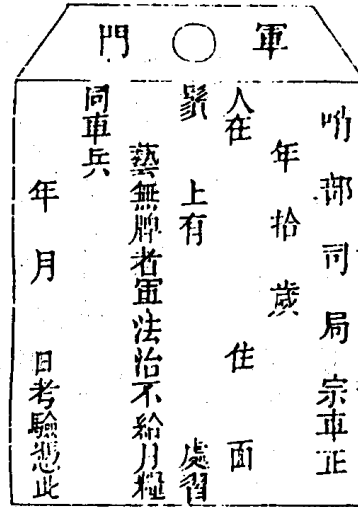 軍 ○ 門
哨部司局宗車正
年拾歲
人在 住 面
上有 處習
藝無牌者軍法治不給月糧
同車兵
年月 日考驗憑此